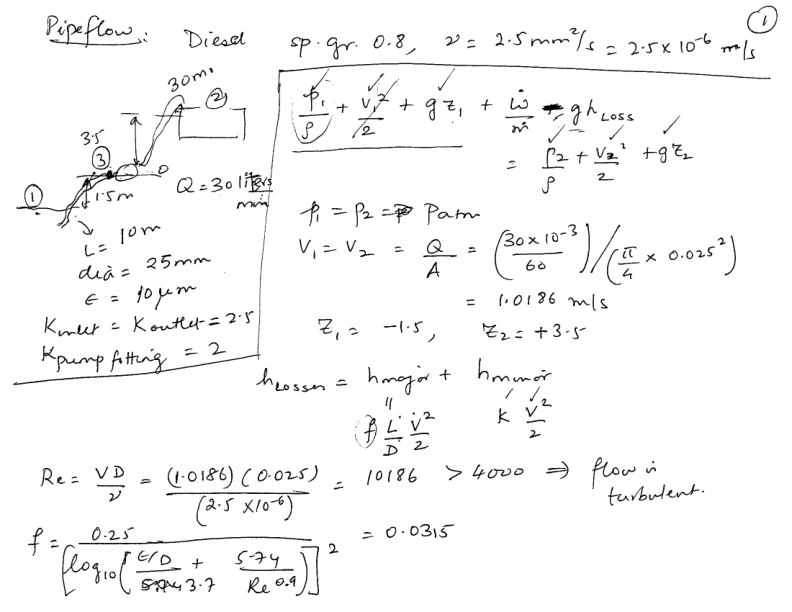 ①
Pipeflow: Diesel sp. gr. 0.8, ν = 2.5 mm²/s = 2.5 x 10⁻⁶ m²/s
30m
②
3.5
③
0
①
1.5m
Q = 30 liters/min
L = 10m
dia = 25mm
ε = 10 μm
Kinlet = Koutlet = 2.5
Kpump fitting = 2
p₁/ρ + V₁²/2 + gz₁ + ẇ/ṁ - gh Loss
= p₂/ρ + V₂²/2 + gz₂
p₁ = p₂ = Patm
V₁ = V₂ = Q/A = (30 x 10⁻³/60) / (π/4 x 0.025²)
= 1.0186 m/s
Z₁ = -1.5, Z₂ = +3.5
hLosses = hmajor + hminor
f L/D V²/2 K V²/2
Re = VD/ν = (1.0186)(0.025)/(2.5 x10⁻⁶) = 10186 > 4000 ⇒ flow is
turbulent.
f = 0.25/[log₁₀(ε/D/3.7 + 5.74/Re^0.9)]² = 0.0315